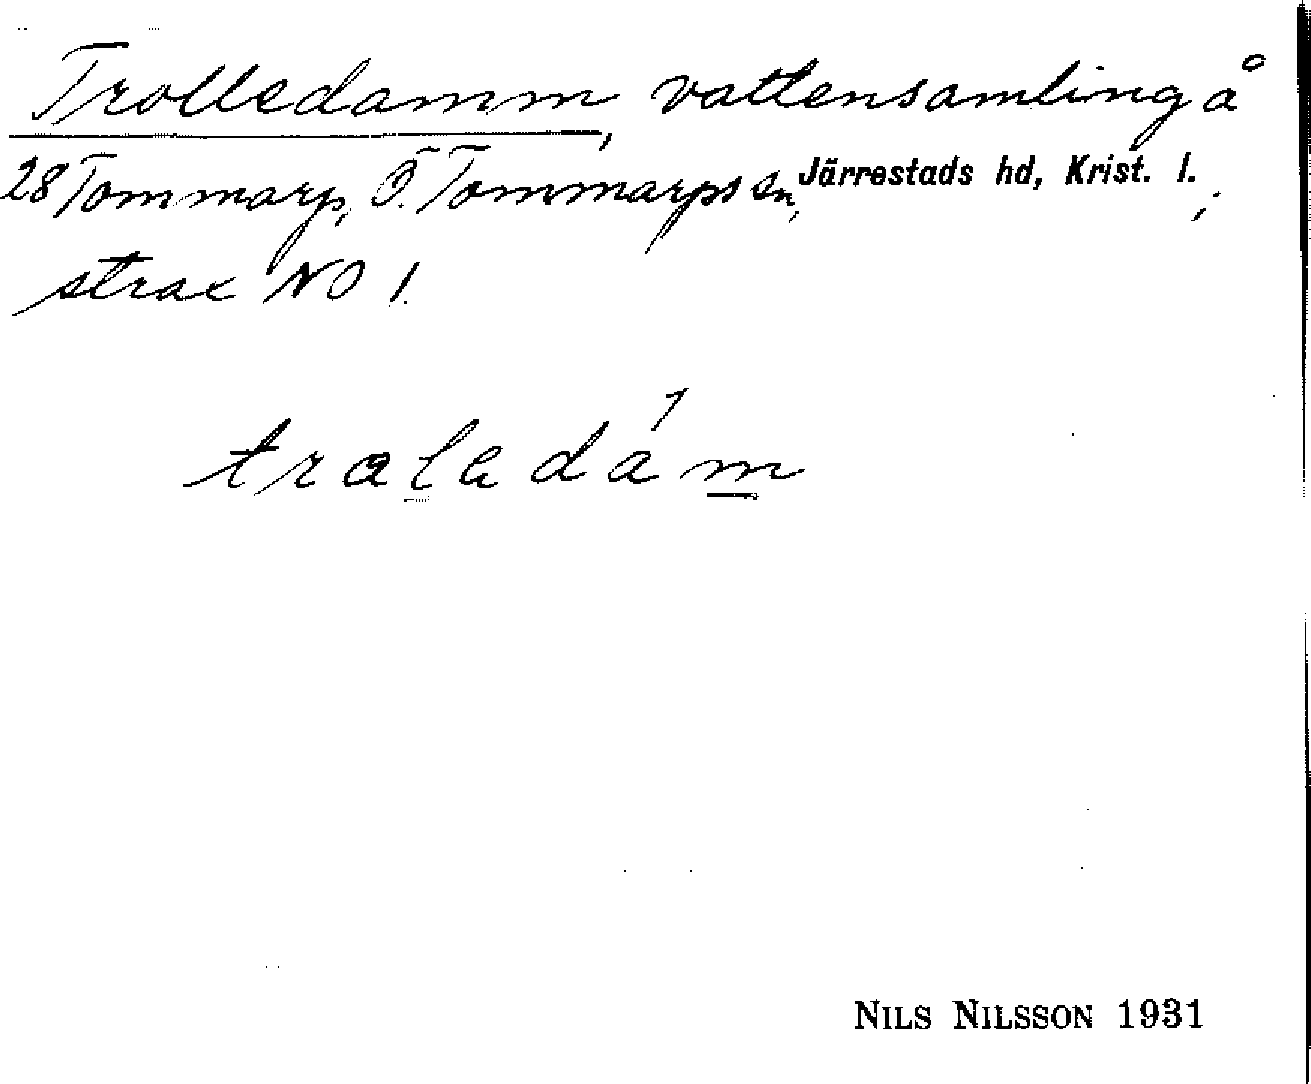 Trolledamm, vattensamling å
28 Tommarp, Ö. Tommarps sn, Järrestads hd, Krist. l.;
strax NO 1.
traledám
NILS NILSSON 1931